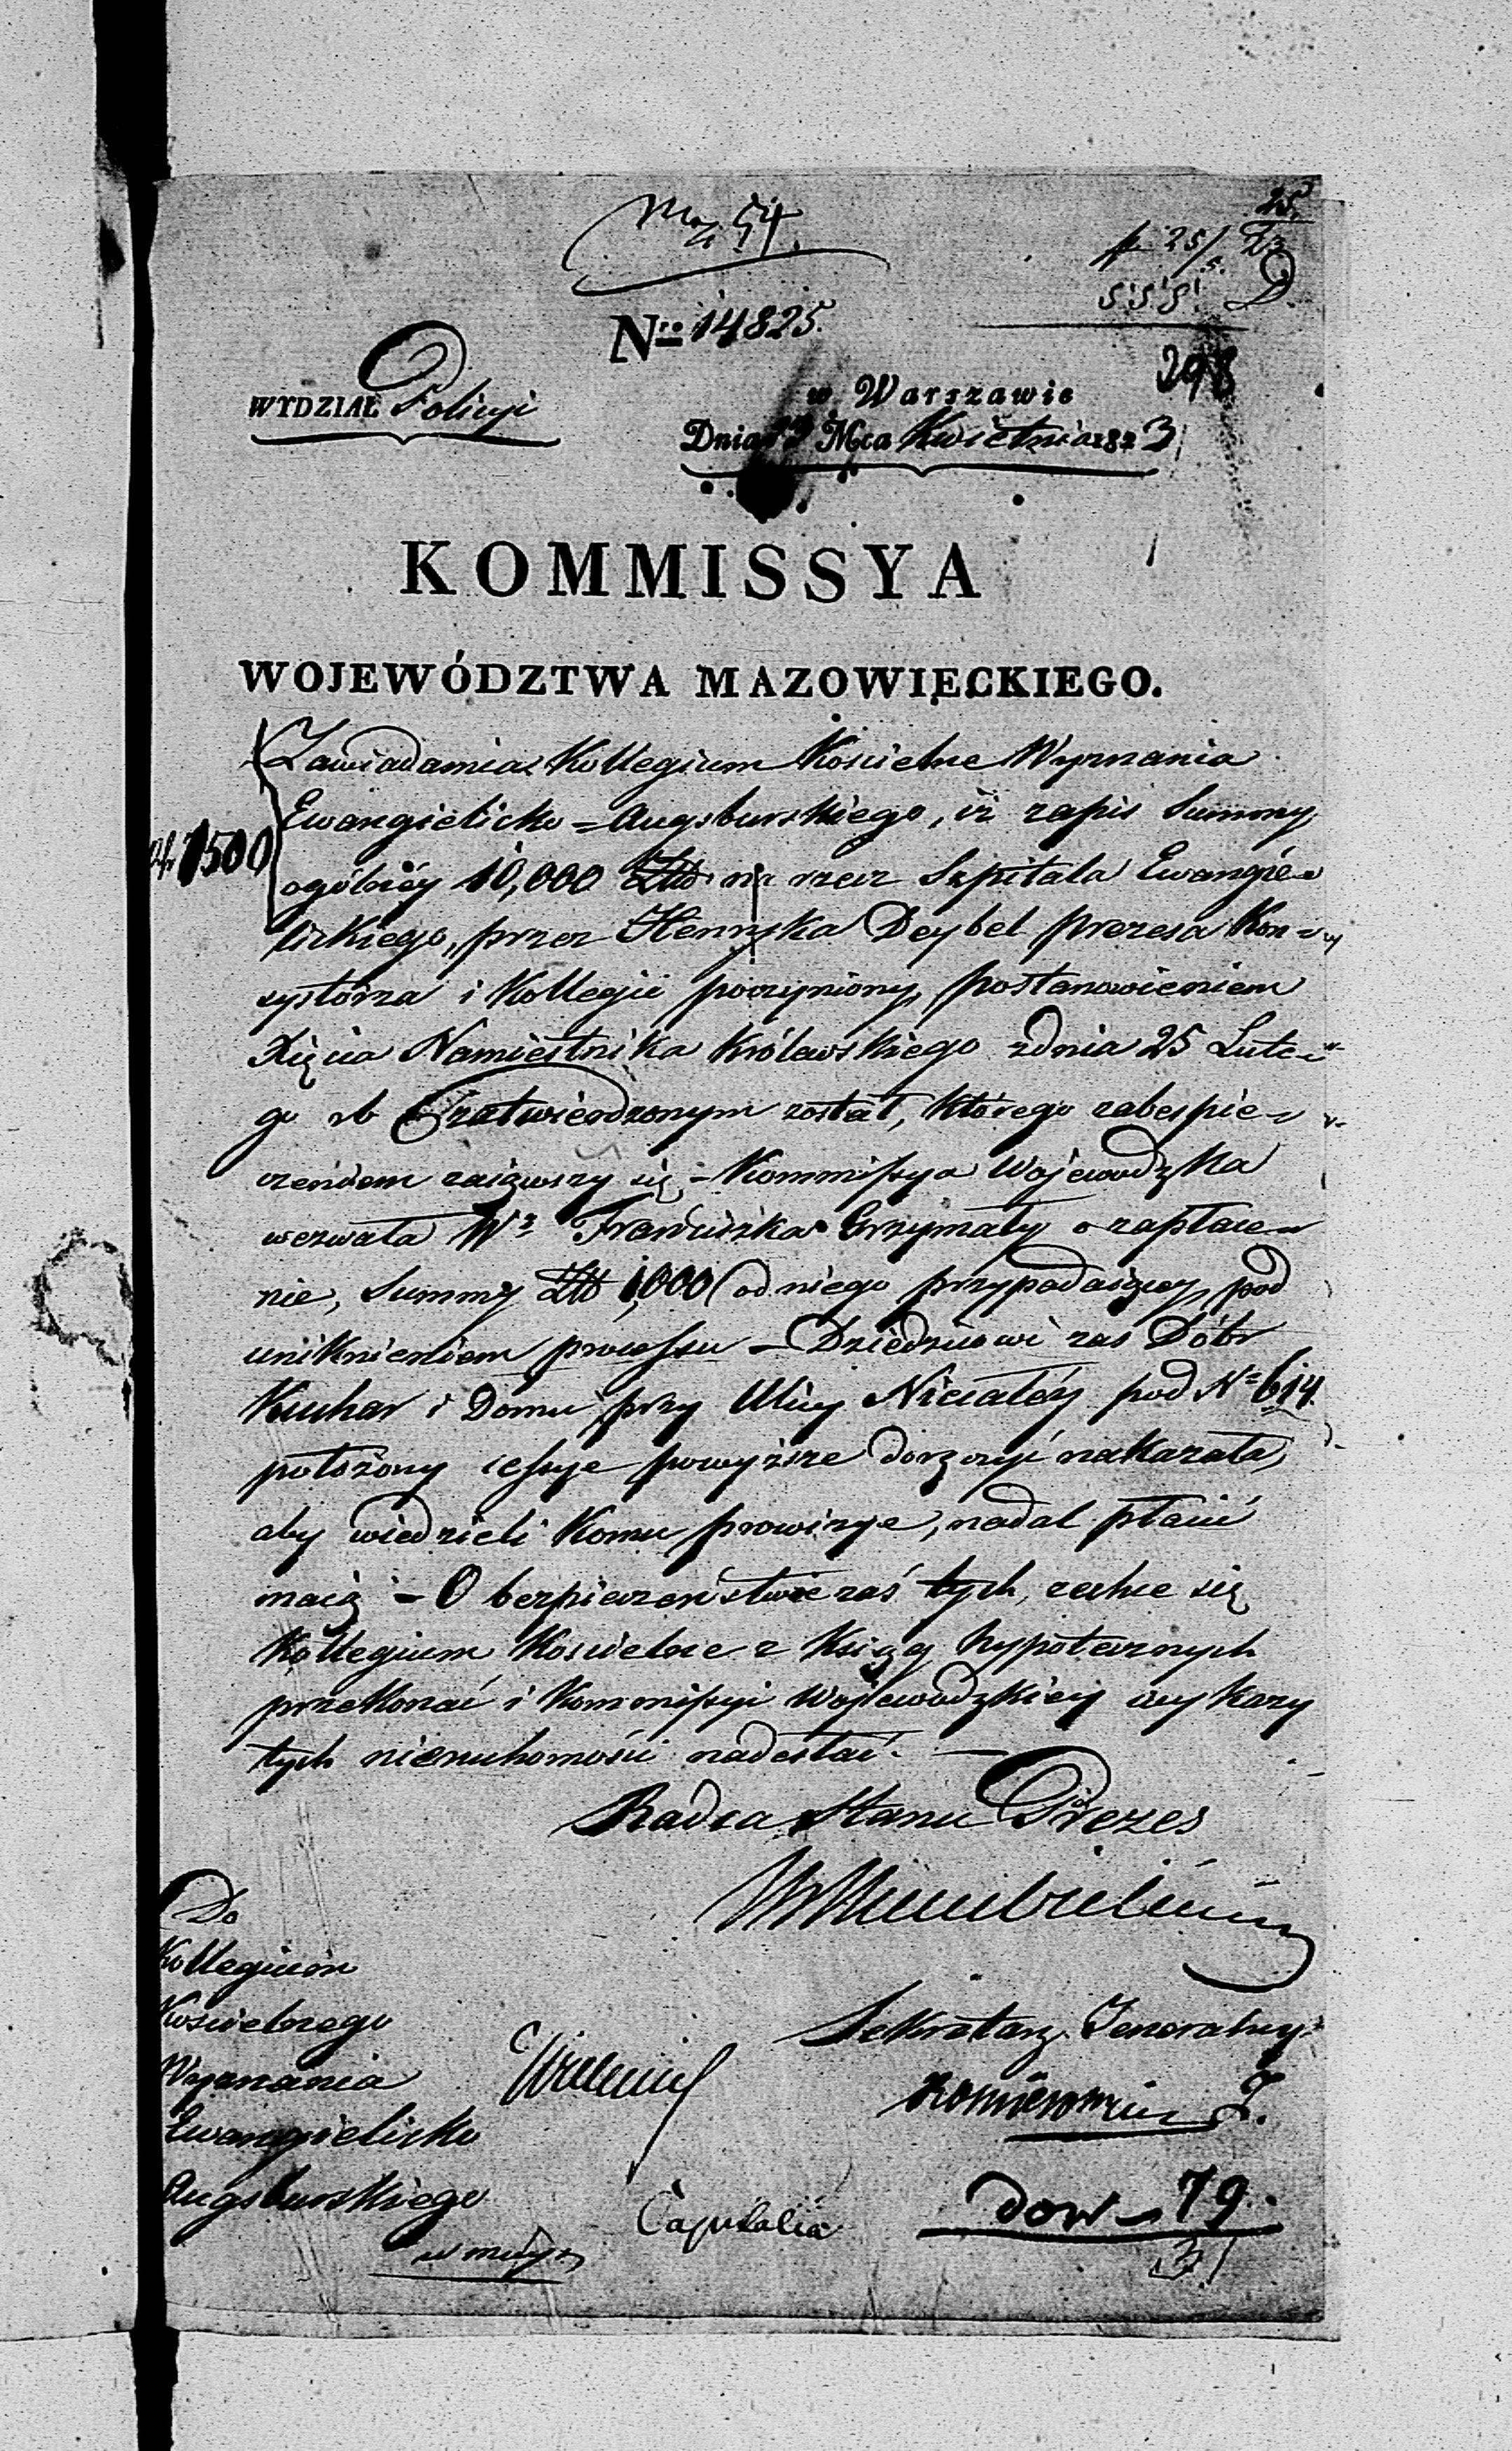 54.
25.
Nro 14825.
298
WYDZIAŁ Policyi
w Warszawie
Dnia 19 Mca Kwietnia 1823
KOMMISSYA
WOJEWÓDZTWA MAZOWIĘCKIEGO.
Zawiadamia Kollegium Kościelne Wyznania
Ewangielicko = Augsburskiego, iż zapis Summy
1500
ogólnéy 10,000 Złł na rzecz Szpitala Ewangie=
lickiego, przez Henryka Deybel Prezesa Kon=
systórza i Kollegii poczyniony, postanowieniem
Xięcia Namiestnika Królewskiego z dnia 25 Lute=
go rb zatwierdzonym został, którego zabespie=
czeniem zaiąwszy się, - Kommissya Woiewodzka
wezwała W° Franciszka Grzymały o zapłace=
nie, Summy Złł 1,000 od niego przypadaiącey, pod
uniknieniem processu - Dziedzicowi zas Dóbr
Kuchar i Domu przy Ulicy Niecałéy pod No 614
położony cessye powyższe doręczyć nakazała,
aby wiedzieli komu prowizye, nadal płacić
maią - O bezpieczeństwie zaś tych, zechce się
Kollegium Koscielne z Ksiąg hypotecznych
przekonać i Kommissyi Woiewodzkiey wykazy
tych nieruchomości nadesłać. -
Radca Stanu Prezes
Do
Kollegium
Koscielnego
Wyznania
Ewangielicko
Augsburskiego
Sekretarz Jeneralny
Capitalia
dow 79.
31